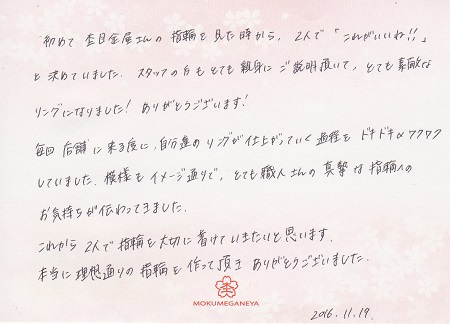 初めて 杢目金屋さんの 指輪を 見た時から、2人で「これがいいね!!」
と 決めていました。スタッフの方も とても 親身に ご説明頂いて、とても 素敵な
リングになりました! ありがとうございます!
毎回 店舗に 来る度に、自分達の リングが 仕上がっていく 過程を ドキドキ&ワクワク
していました。模様も イメージ通りで、とても 職人さんの 真摯な 指輪への
お気持ちが 伝わってきました。
これから 2人で 指輪を 大切に 着けていきたいと 思います。
本当に 理想通りの 指輪を 作って頂き ありがとうございました。
MOKUMEGANEYA
2016.11.19.